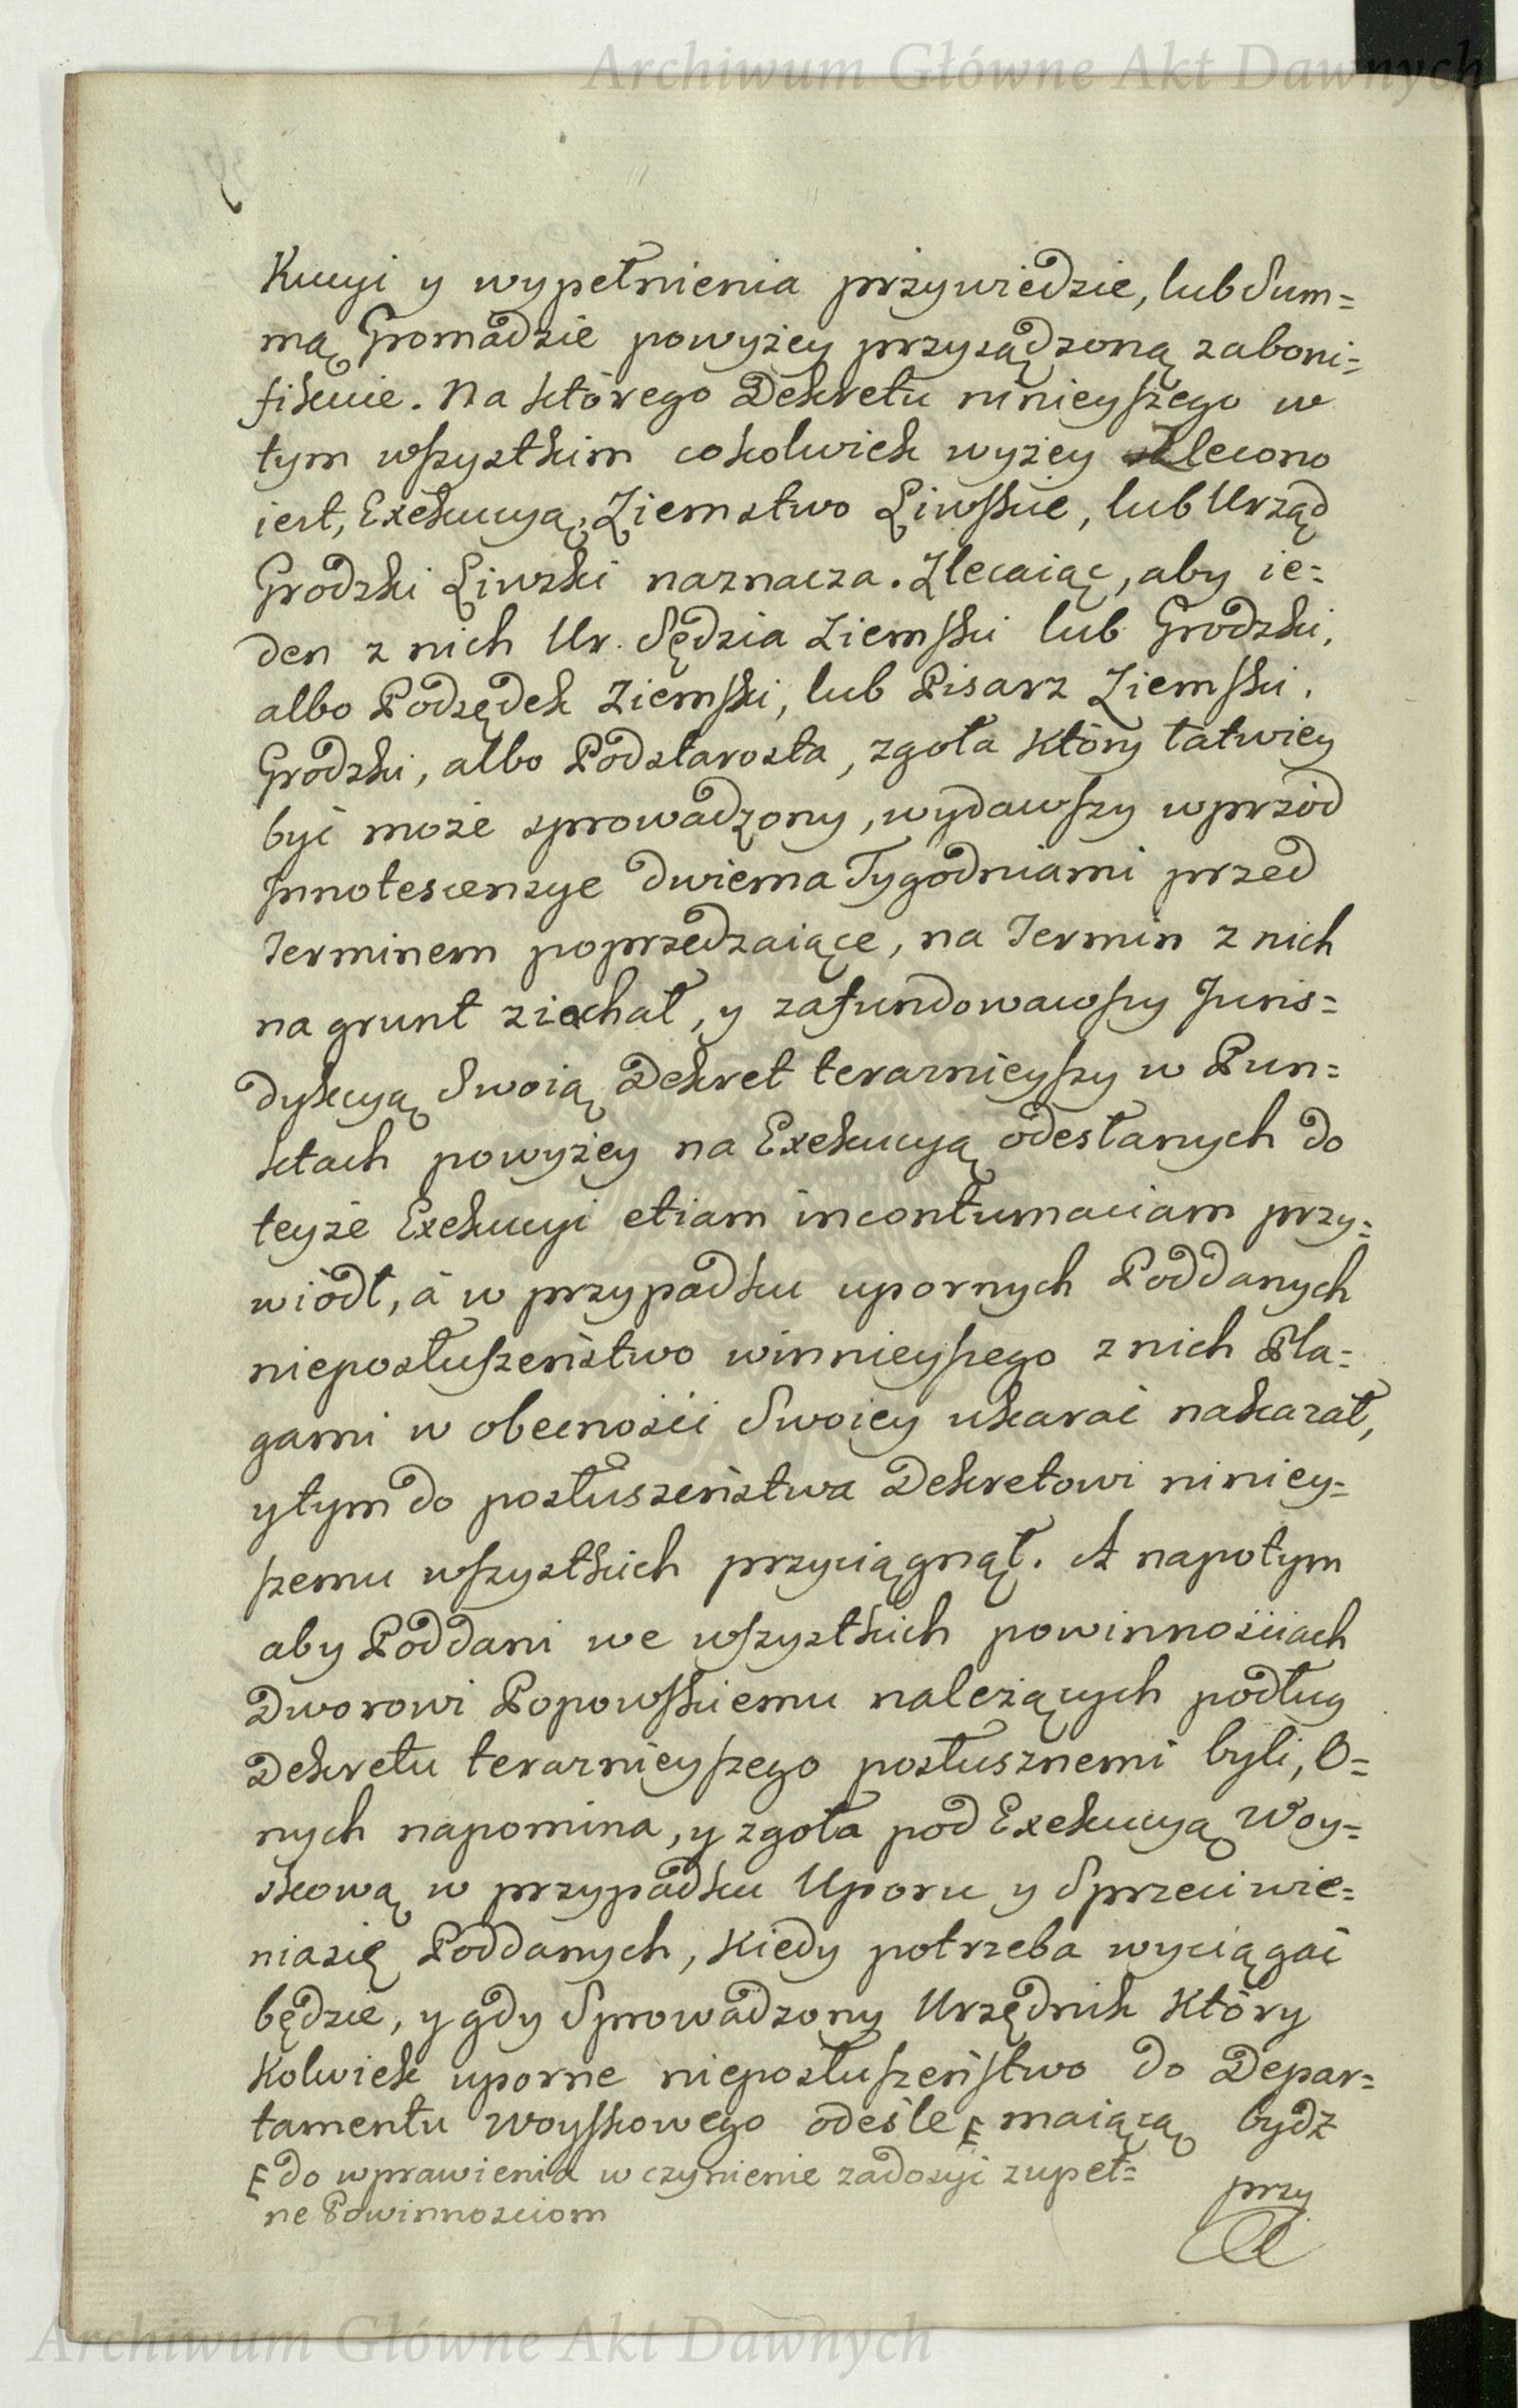 Archiwum Główne Akt Dawnych
Kucyi y wypełnienia przywiedzie, lub Sum=
mą Gromadzie powyżey przysądzoną zaboni=
fikuie. Na którego Dekretu ninieyszego w
tym wszystkim cokolwiek wyżey zlecono
iest, Exekucyą, Ziemstwo Liwskie, lub Urząd
Grodzki Liwski naznacza. Zlecaiąc, aby ie=
den z nich Ur. Sędzia Ziemski lub Grodzki,
albo Podsędek Ziemski, lub Pisarz Ziemski,
Grodzki, albo Podstarosta, zgoła który łatwiey
być może sprowadzony, wydawszy wprzód
Innotescensye dwiema Tygodniami przed
Terminem poprzedzaiące, na Termin z nich
na grunt ziechał, y zafundowawszy Juris=
dykcyą Swoią Dekret teraznieyszy w Pun=
ktach powyżey na Exekucyą odesłanych do
teyże Exekucyi etiam incontumaciam przy=
wiódł, á w przypadku upornych Poddanych
nieposłuszeństwo winnieyszego z nich Pla=
gami w obecności Swoiey ukarać nakazał,
y tym do posłuszeństwa Dekretowi niniey=
szemu wszystkich przyciągnął. A napotym
aby Poddani we wszystkich powinnościach
Dworowi Popowskiemu należących podług
Dekretu teraznieyszego posłusznemi byli, O=
nych napomina, y zgoła pod Exekucyą Woy=
skową w przypadku Uporu y Sprzeciwie=
nia się Poddanych, kiedy potrzeba wyciągać
będzie, y gdy Sprowadzony Urzędnik który
kolwiek uporne nieposłuszeństwo do Depar=
tamentu Woyskowego odeśle F maiącą bydz
F do wprawienia w czynienie zadosyć zupeł=
ne Powinnosciom
przy
Archiwum Główne Akt Dawnych